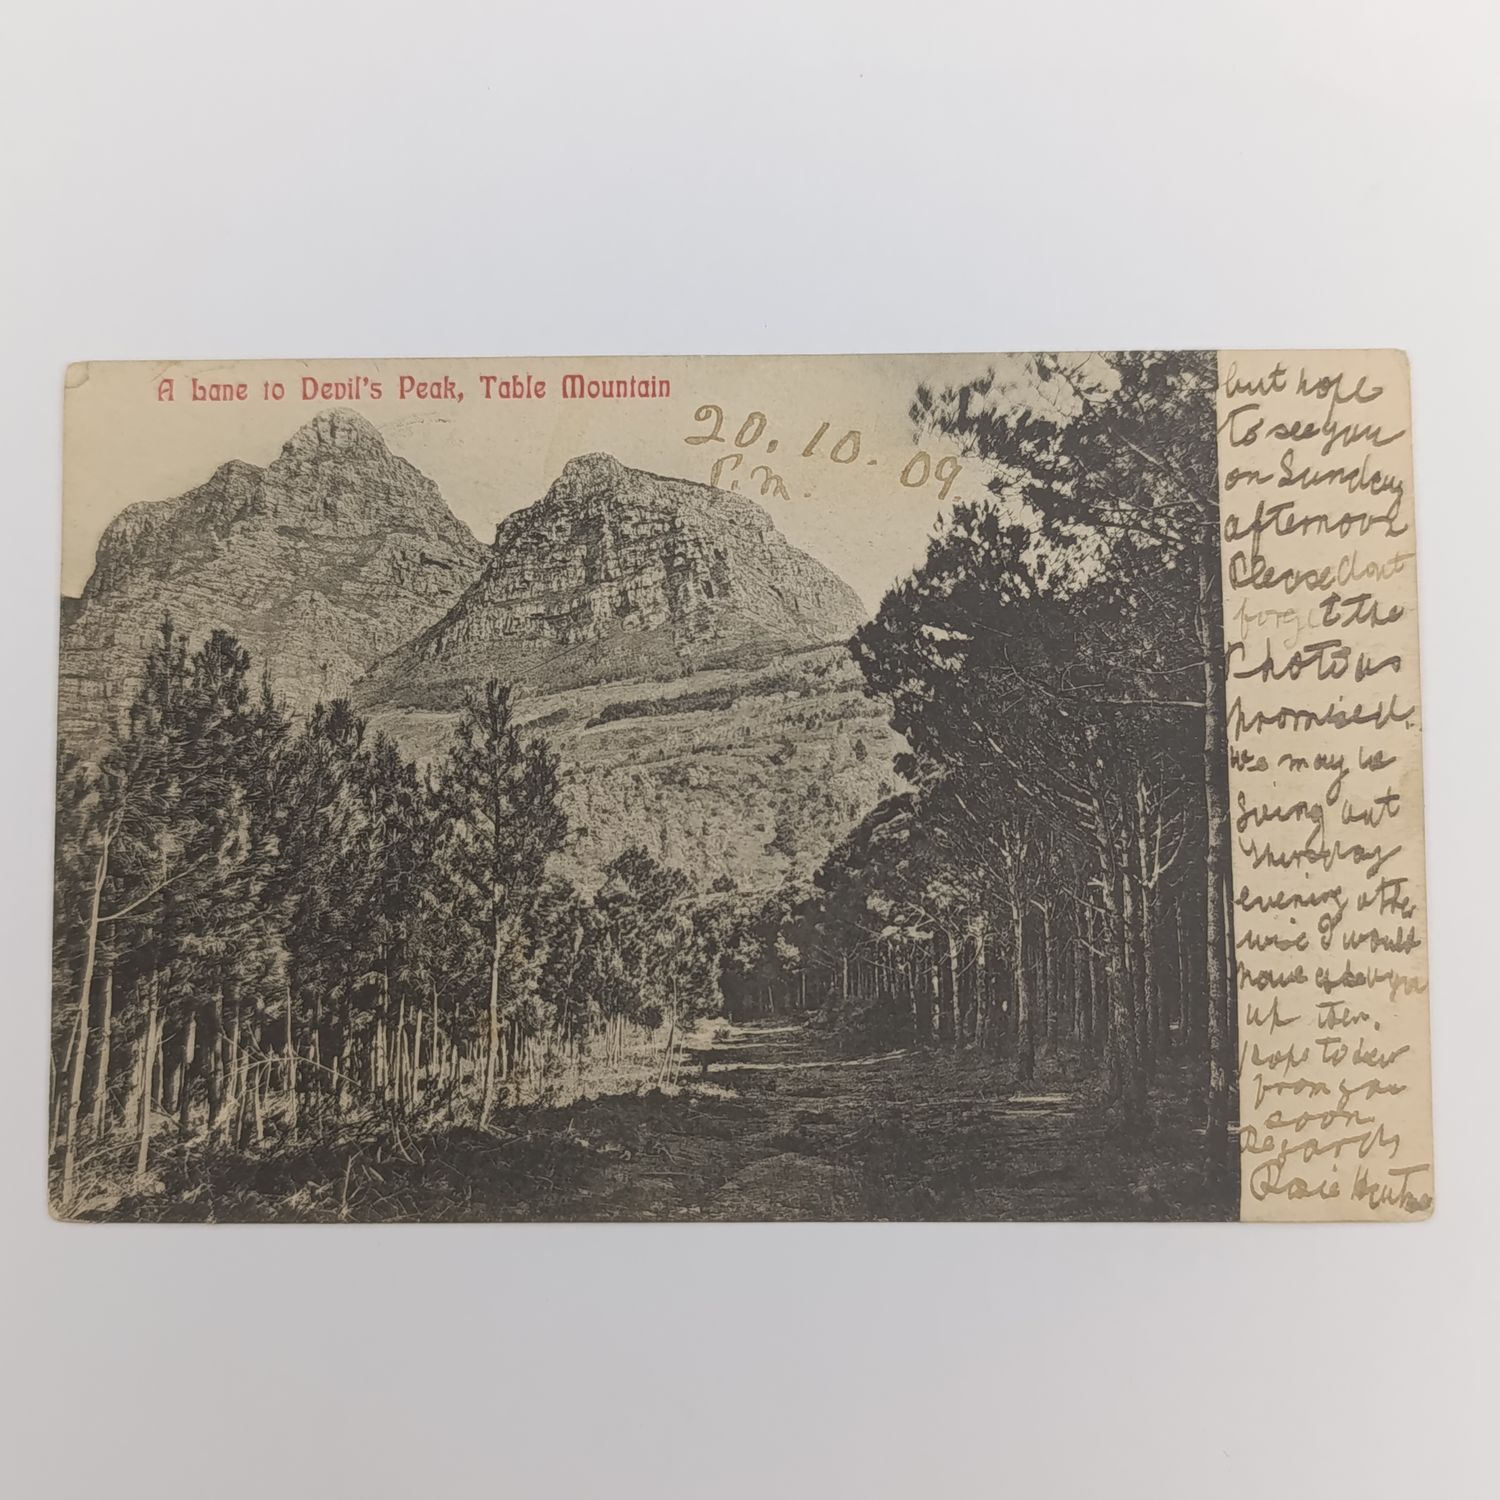 A Lane to Devil's Peak, Table Mountain
20. 10. 09.
P.M.
but hope
to see you
on Sunday
afternoon
Please dont
forget the
Photo as
promised.
We may be
going out
Thursday
evening other
wise I would
have you
up then.
hope to hear
from you
soon
Regards
Rosie